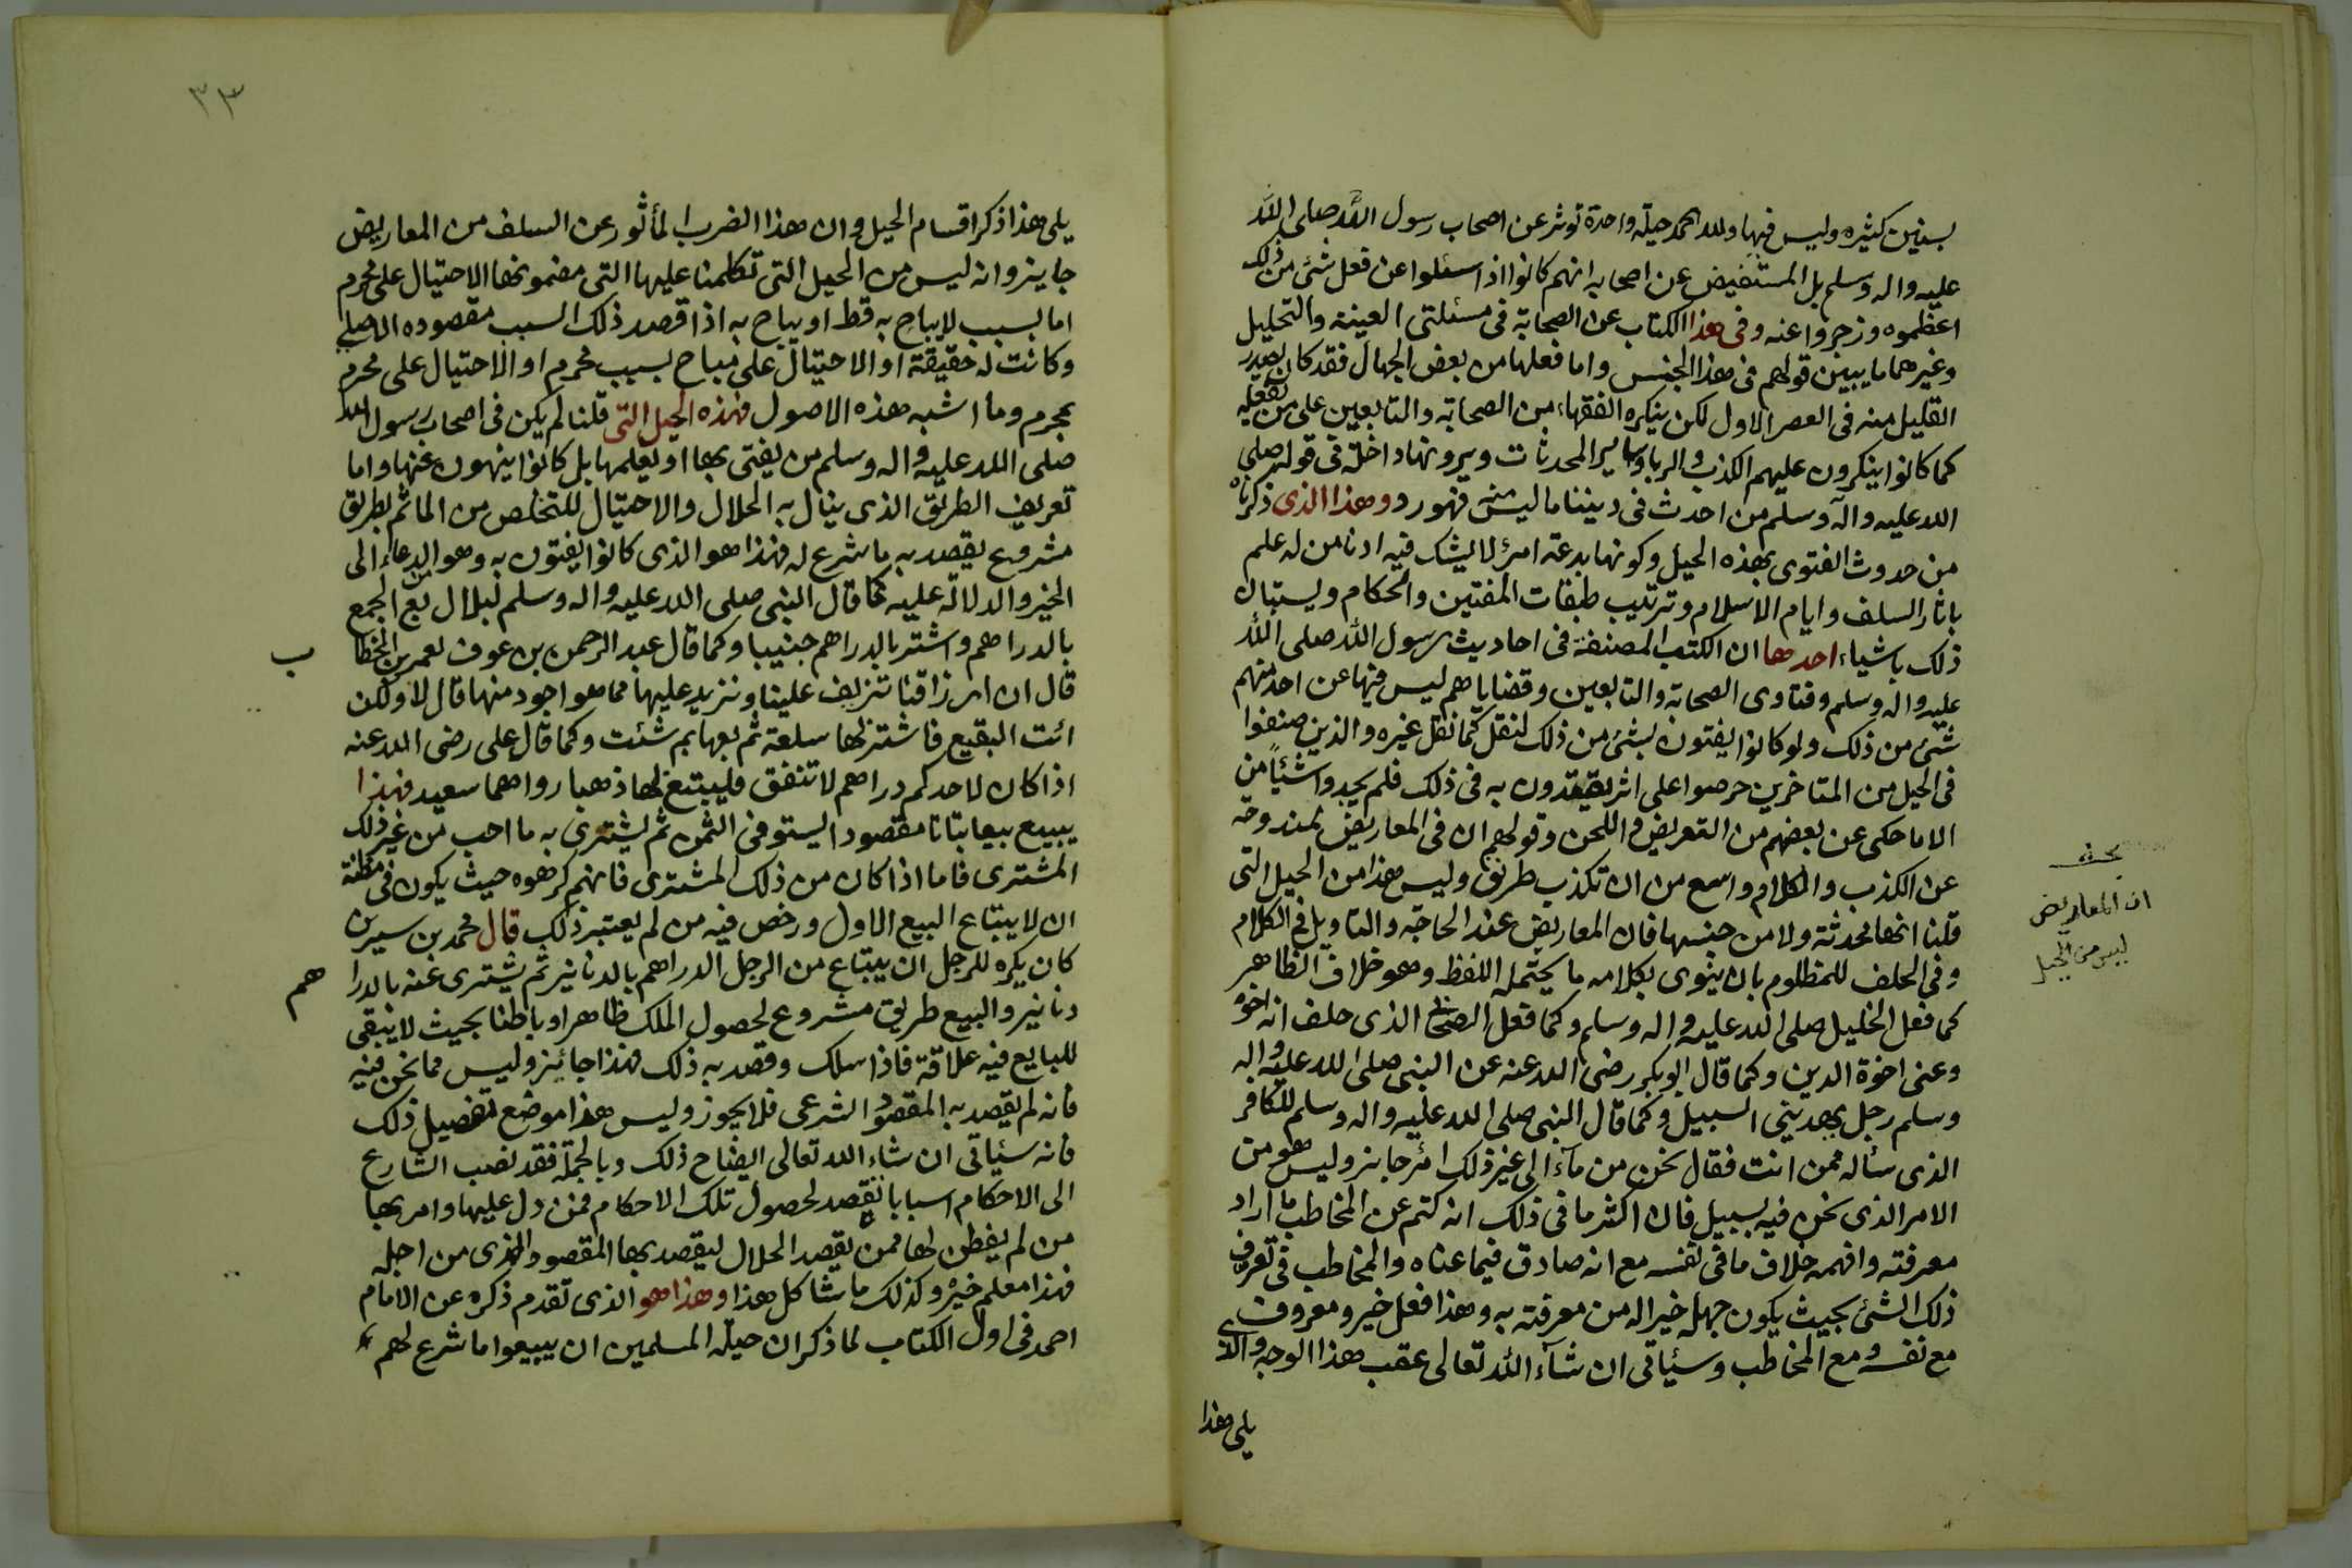 بسنين كثيره وليس فيها ولله الحمد حيلة واحدة تؤثر عن اصحاب رسول الله صلى الله
عليه واله وسلم بل المستفيض عن اصحابه انهم كانوا اذا سئلوا عن فعل شئ من ذلك
اعظموه وزجروا عنه وفى هذا الكتاب عن الصحابة فى مسئلتى العينه والتحليل
وغيرهما ما يبين قولهم فى هذا الجنس واما فعلها من بعض الجهال فقد كان يصدر
القليل منه فى العصر الاول لكن ينكره الفقهاء من الصحابة والتابعين على من يفعله
كما كانوا ينكرون عليهم الكذب والربا وساير المحدثات ويرونها داخلة فى قوله صلى
الله عليه وآله وسلم من احدث فى ديننا ما ليس منه فهو رد وهذا الذى ذكرناه
من حدوث الفتوى بهذه الحيل وكونها بدعة امر لا يشك فيه ادنا من له علم
باثار السلف وايام الاسلام وترتيب طبقات المفتين والحكام ويستبان
ذلك باشياء احدها ان الكتب المصنفة فى احاديث رسول الله صلى الله
عليه واله وسلم وفتاوى الصحابة والتابعين وقضاياهم ليس فيها عن احد منهم
شئ من ذلك ولو كانوا يفتون بشئ من ذلك لنقل كما نقل غيره والذين صنفوا
فى الحيل من المتاخرين حرصوا على اثر يقتدون به فى ذلك فلم يجدوا شيئا من
الا ما حكى عن بعضهم من التعريض واللحن وقولهم ان فى المعاريض لمندوحة
عن الكذب والكلام واسع من ان تكذب طريق وليس هذا من الحيل التى
قلنا انها محدثة ولا من جنسها فان المعاريض عند الحاجة والتاويل فى الكلام
وفى الحلف للمظلوم بان ينوى بكلامه ما يحتمله اللفظ وهو خلاف الظاهر
كما فعل الخليل صلى الله عليه واله وسلم وكما فعل الصحابى الذى حلف انه اخوه
وعنى اخوة الدين وكما قال ابوبكر رضى الله عنه عن النبى صلى الله عليه واله
وسلم رجل يهدينى السبيل وكما قال النبى صلى الله عليه واله وسلم للكافر
الذى سئاله ممن انت فقال نحن من مآء الى غير ذلك امر جايز وليس هو من
الامر الذى نحن فيه بسبيل فان اكثر ما فى ذلك انه كتم عن المخاطب ما اراد
معرفته وافهمه خلاف ما فى نفسه مع انه صادق فيما عناه والمخاطب فى تعرف
ذلك الشئ بحيث يكون جهله خيرا له من معرفته به وهذا فعل خير ومعروف
مع نفسه ومع المخاطب وسيأتى ان شآء الله تعالى عقب هذا الوجه والذى
يلى هذا
ان المعاريض
ليس من الحيل
٣٣
يلى هذا ذكر اقسام الحيل وان هذا الضرب المأثور عن السلف من المعاريض
جايز وانه ليس من الحيل التى تكلمنا عليها التى مضمونها الاحتيال على محرم
اما بسبب لايباح به قط او يباح به اذا قصد ذلك السبب مقصوده الاصلى
وكانت له حقيقة او الاحتيال على مباح بسبب محرم او الاحتيال على محرم
بمحرم وما اشبه هذه الاصول فهذه الحيل التى قلنا لم يكن فى اصحاب رسول الله
صلى الله عليه واله وسلم من يفتى بها او يعلمها بل كانوا ينهون عنها واما
تعريف الطريق الذى ينال به الحلال والاحتيال للتخلص من الماثم بطريق
مشروع يقصد به ما شرع له فهذا هو الذى كانوا يفتون به وهو الدعاء الى
الخير والدلالة عليه كما قال النبى صلى الله عليه واله وسلم لبلال بع الجمع
بالدراهم واشتر بالدراهم جنيبا وكما قال عبد الرحمن بن عوف لعمر بن الخطا ب
قال ان اورزاقنا تزيف علينا ونزيد عليها مما هو اجود منها قال لا ولكن
ائت البقيع فاشتر لها سلعة ثم بعها بم شئت وكما قال على رضى الله عنه
اذا كان لاحدكم دراهم لا تنفق فليبتع لها ذهبا رواهما سعيد فهذا
يبيع بيعا بتاتا مقصودا ليستوفى الثمن ثم يشترى به ما احب من غير ذلك
المشترى فاما اذا كان من ذلك المشترى فانهم كرهوه حيث يكون فى مظنة
ان لا يبتاع البيع الاول ورخص فيه من لم يعتبر ذلك قال محمد بن سيرين
كان يكره للرجل ان يبتاع من الرجل الدراهم بالدنانير ثم يشترى عنه بالدرا هم
دنانير والبيع طريق مشروع لحصول الملك ظاهرا وباطنا بحيث لا يبقى
للبايع فيه علاقة فاذا سلك وقصد به ذلك فهذا جائز وليس مما نحن فيه
فانه لم يقصد به المقصود الشرعى فلا يجوز وليس هذا موضع تفصيل ذلك
فانه سيأتى ان شاء الله تعالى ايضاح ذلك وبالجملة فقد نصب الشارع
الى الاحكام اسبابا يقصد لحصول تلك الاحكام فمن دل عليها وامر بها
من لم يفطن لها ممن يقصد الحلال ليقصد بها المقصود الذى من اجله
فهذا معلم خير وكذلك ما شاكل هذا وهذا هو الذى تقدم ذكره عن الامام
احمد فى اول الكتاب لما ذكر ان حيلة المسلمين ان يبيعوا ما شرع لهم